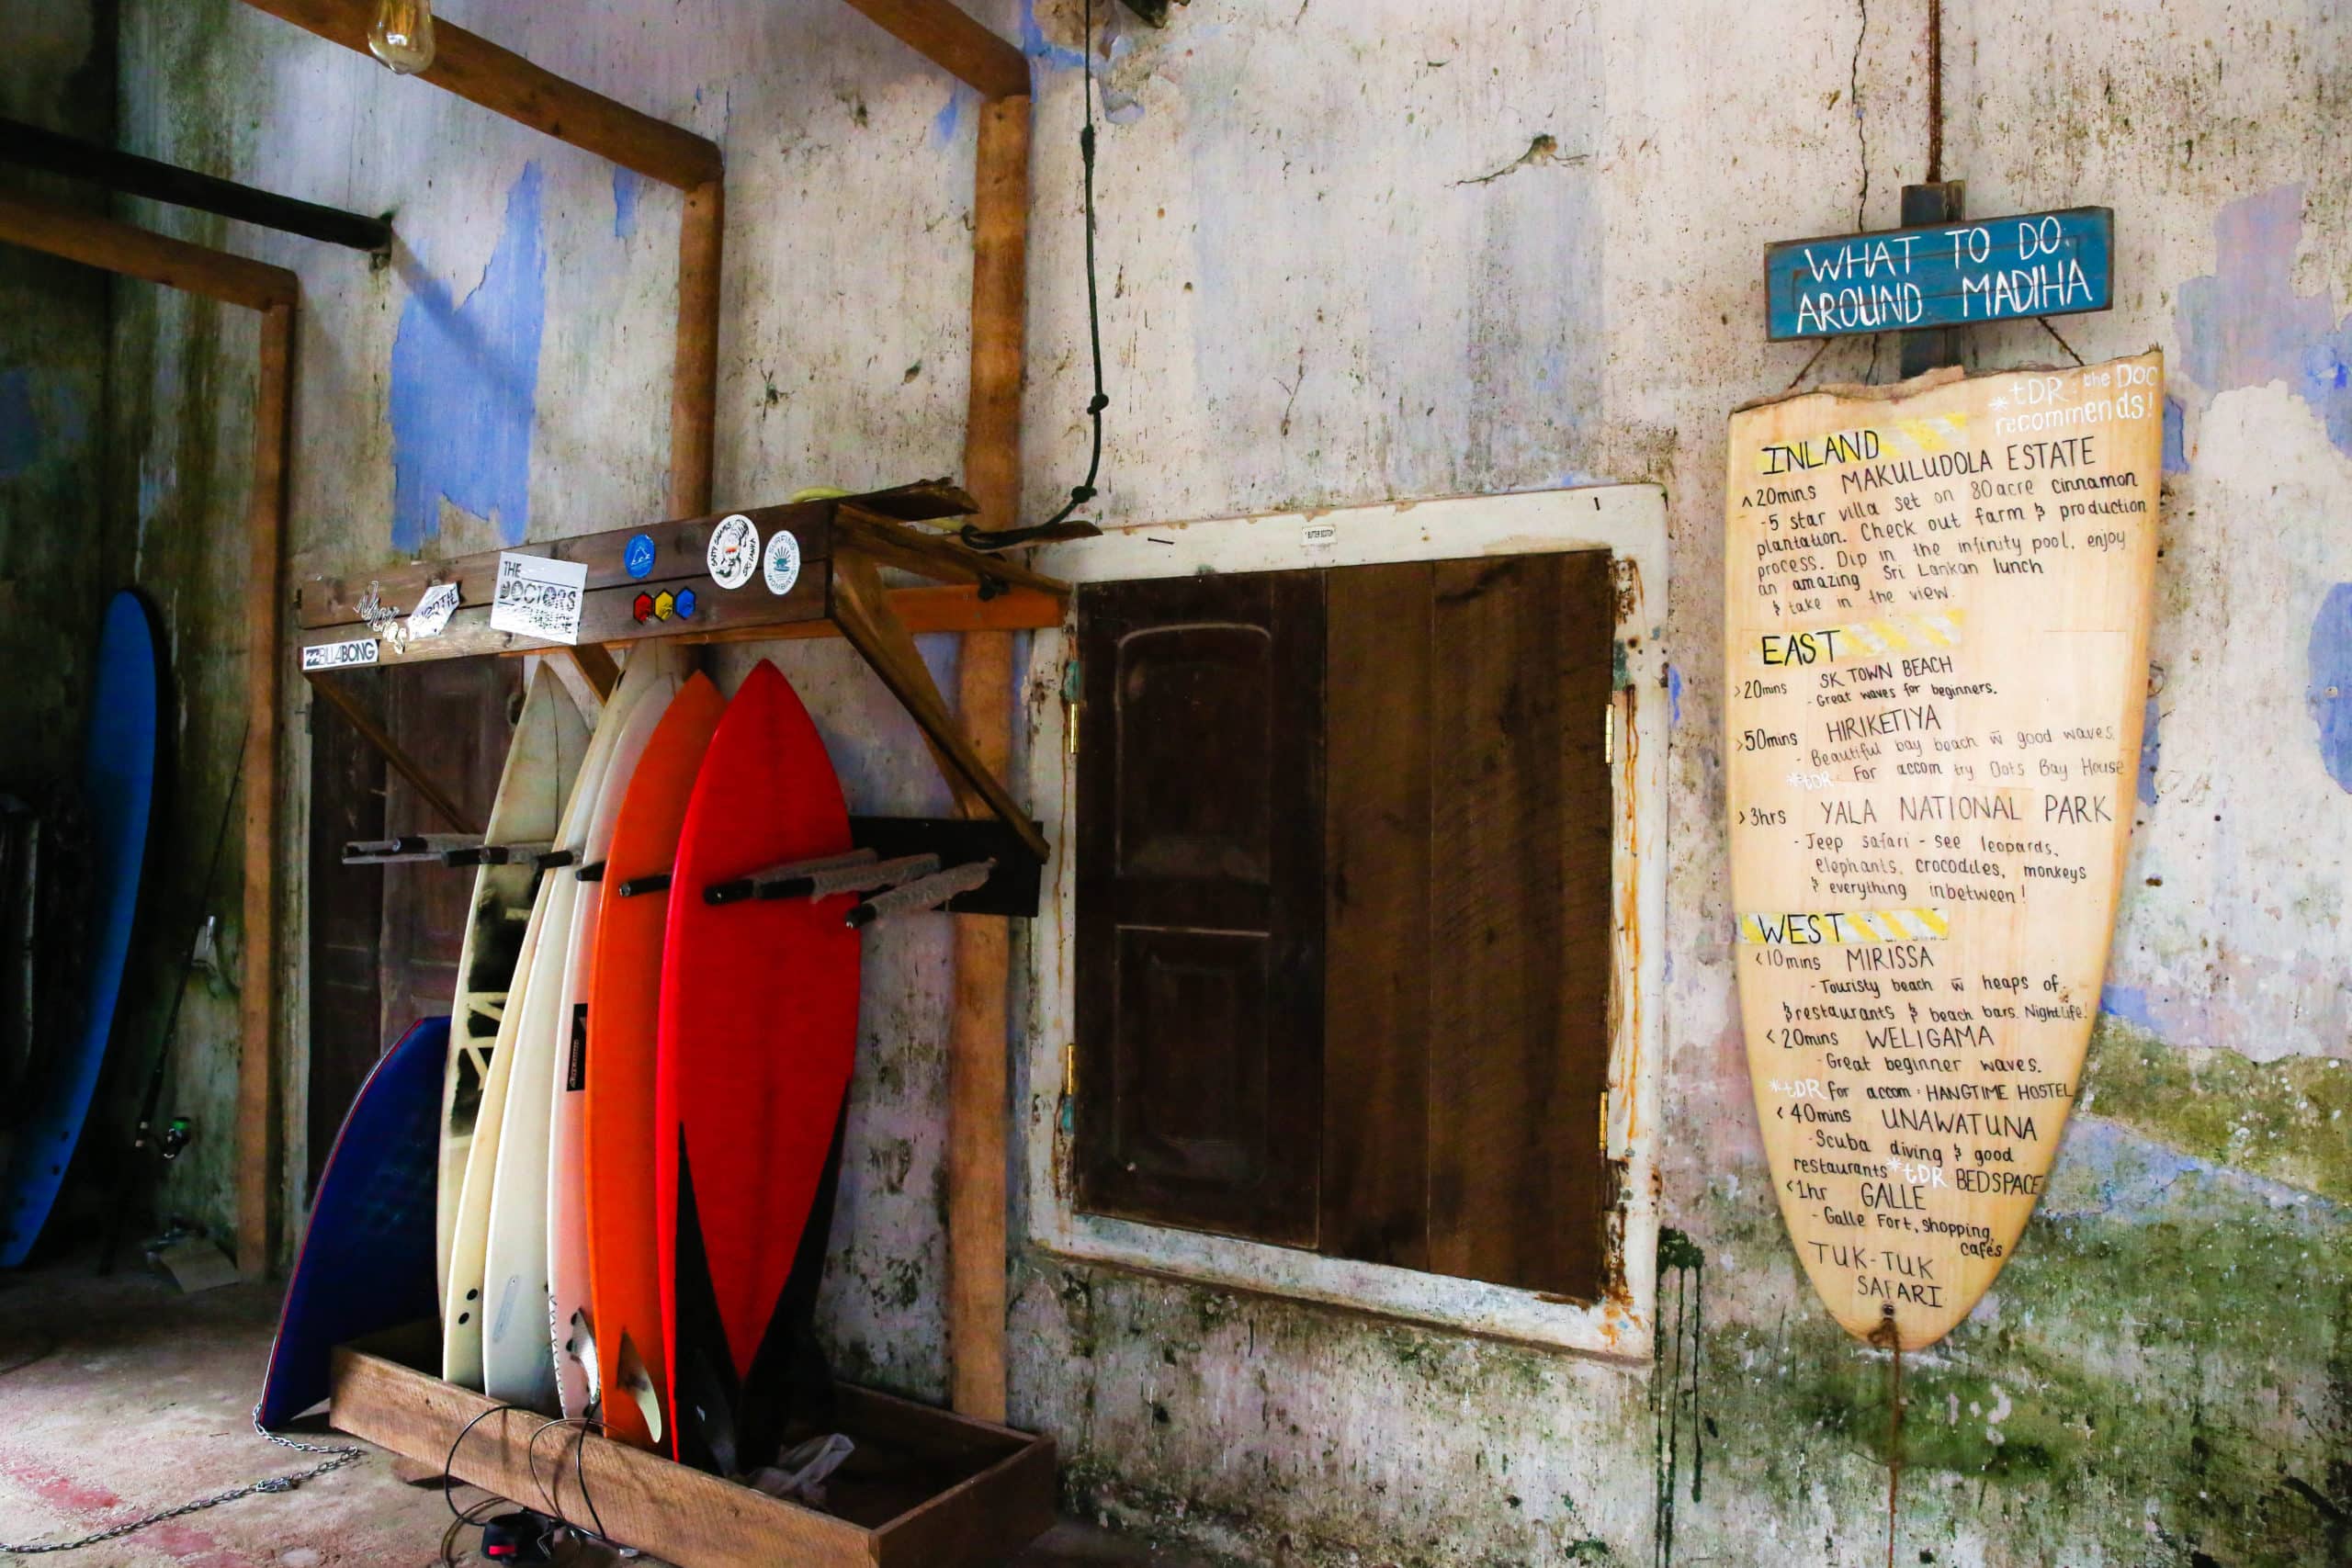 WHAT TO DO
AROUND MADIHA
*tDR: the Doc
recommends!
INLAND
^20mins MAKULUDOLA ESTATE
-5 star villa set on 80acre cinnamon
plantation. Check out farm & production
process. Dip in the infinity pool, enjoy
an amazing Sri Lankan lunch
& take in the view.
EAST
>20mins SK TOWN BEACH
- Great waves for beginners.
>50mins HIRIKETIYA
- Beautiful bay beach w̅ good waves.
*tDR For accom try Dots Bay House
>3hrs YALA NATIONAL PARK
-Jeep safari - see leopards,
elephants, crocodiles, monkeys
& everything inbetween!
WEST
<10mins MIRISSA
-Touristy beach w̅ heaps of
&restaurants & beach bars. Nightlife!
<20mins WELIGAMA
-Great beginner waves.
*tDR for accom: HANGTIME HOSTEL
<40mins UNAWATUNA
-Scuba diving & good
restaurants *tDR BEDSPACE
<1hr GALLE
- Galle Fort, shopping,
cafés
TUK-TUK
SAFARI
THE
DOCTORS
BILLABONG